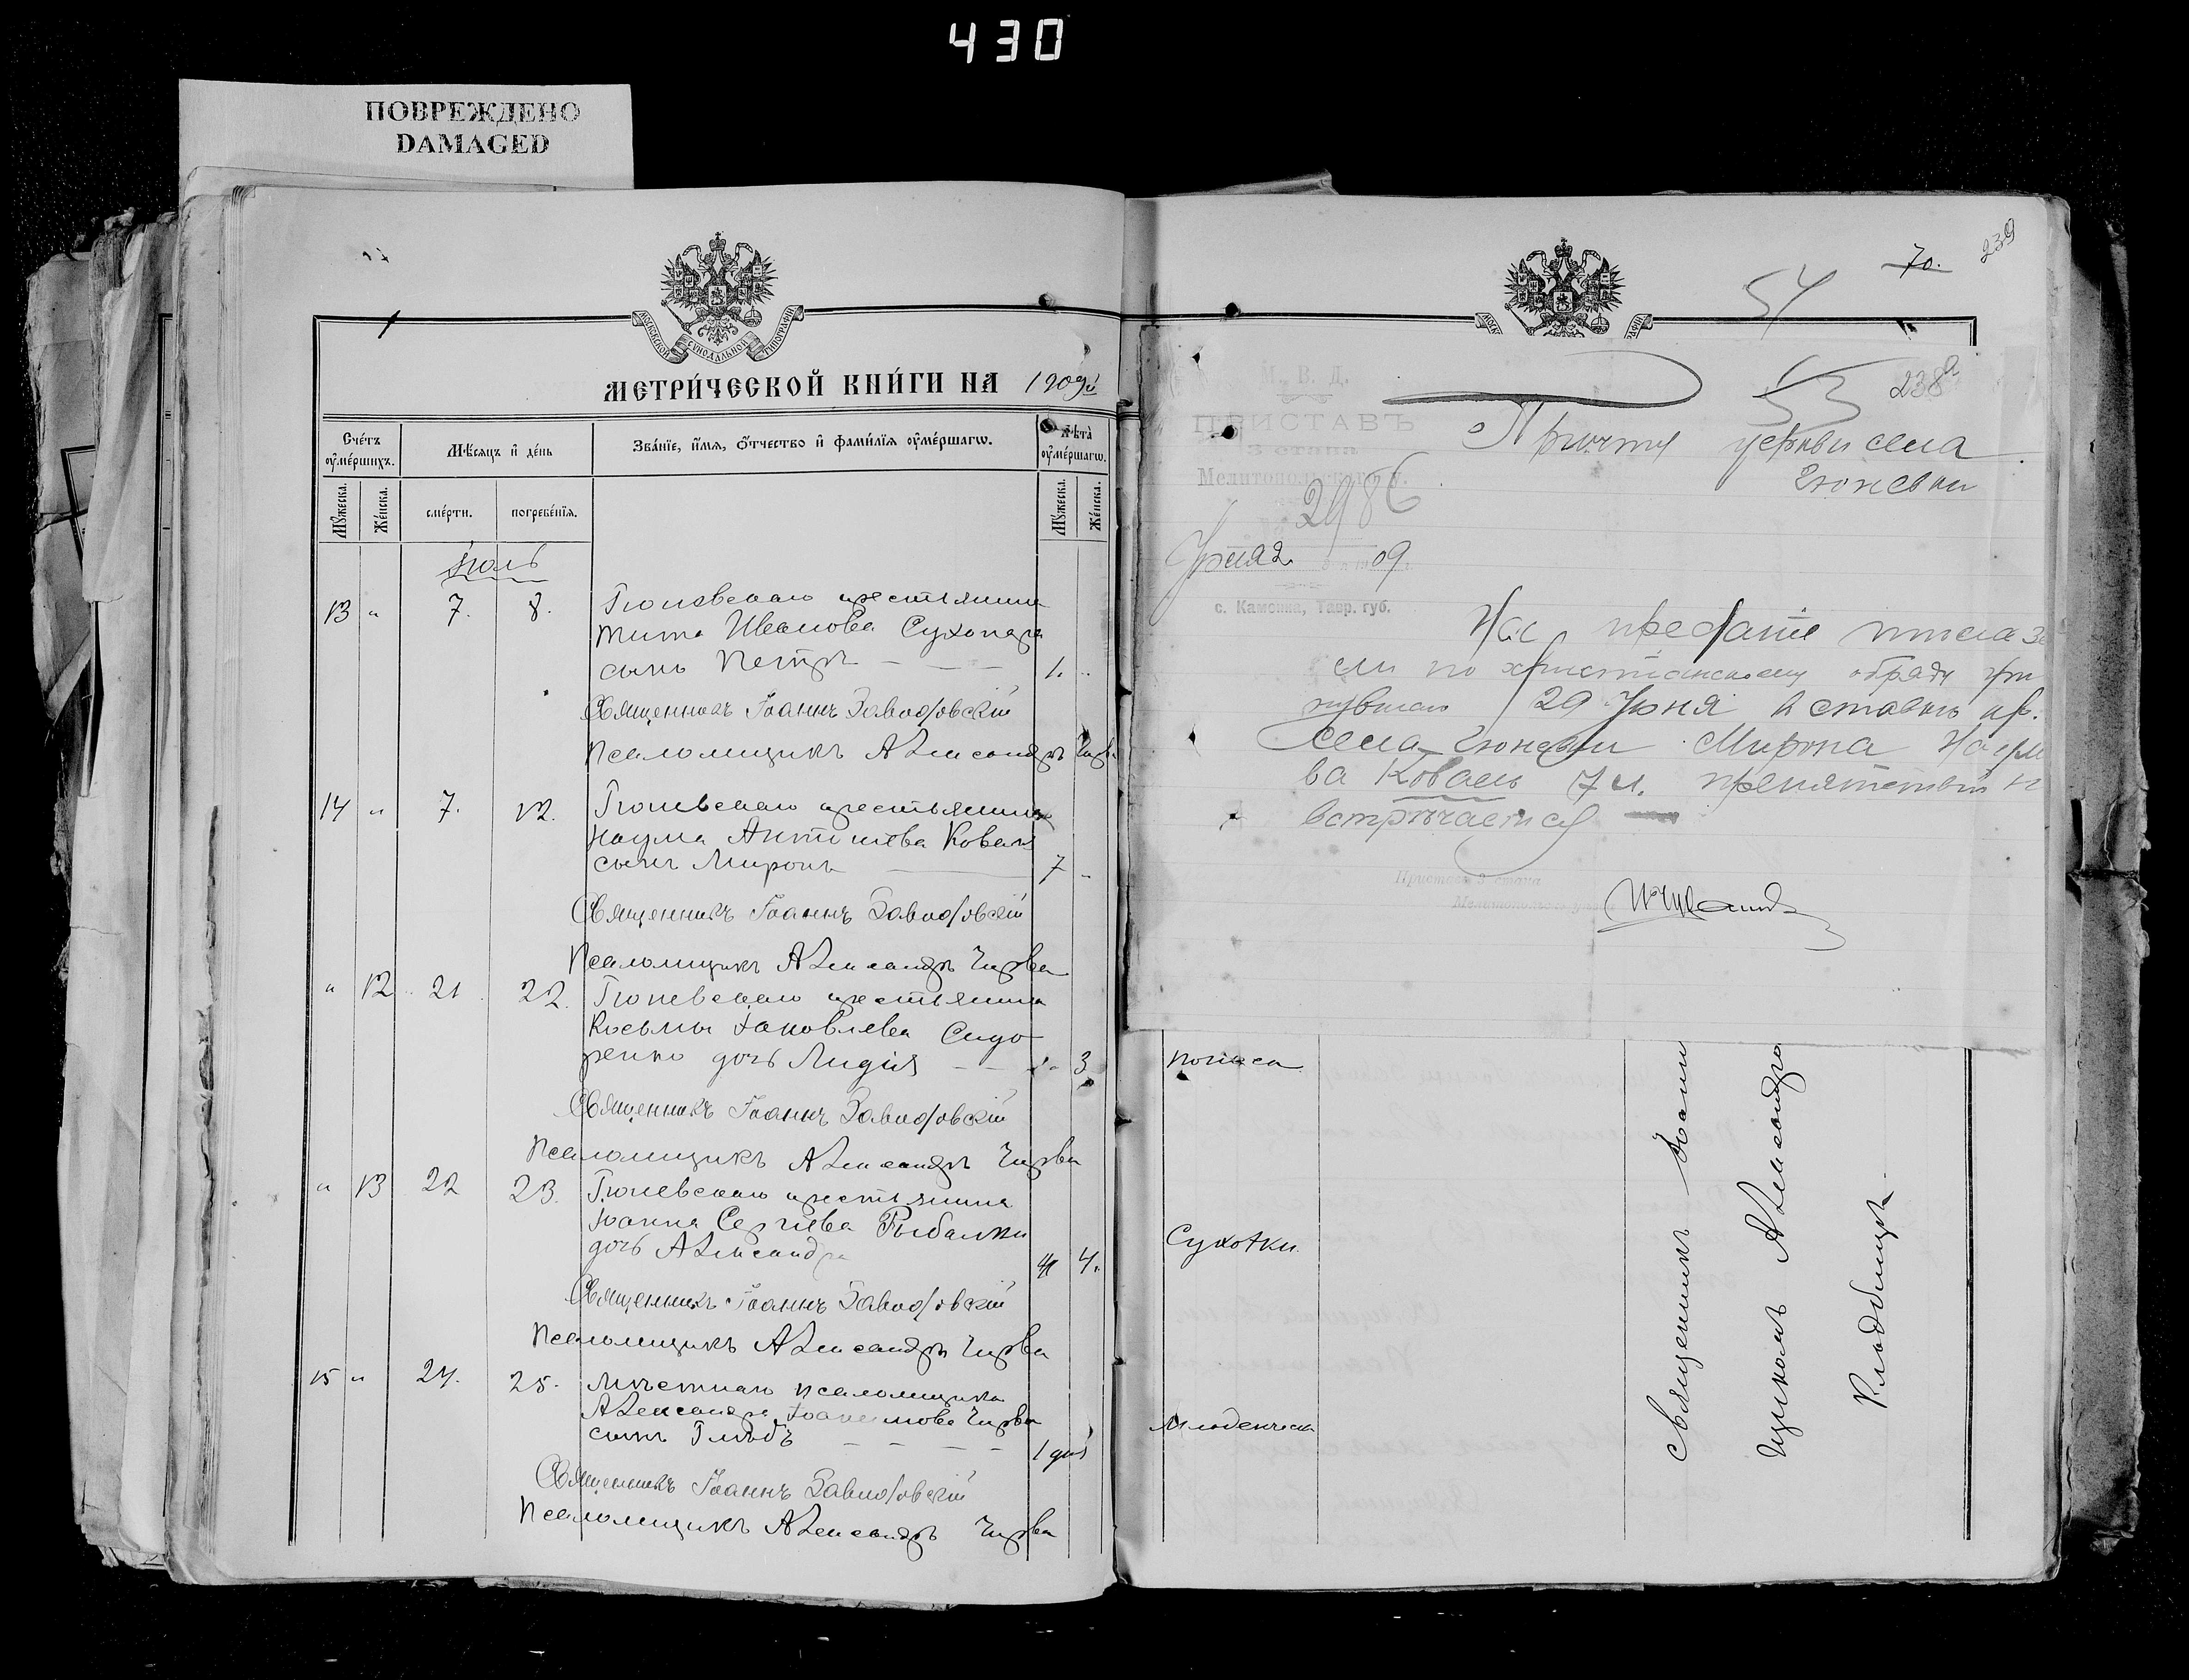 430
ПОВРЕЖДЕНО
DAMAGED
МОСКОВСКОЙ СУНОДАЛЬНОЙ ТИПОГРАФІИ
МЕТРИ́ЧЕСКОЙ КНИ́ГИ НА 1909й
Сче́тъ ᲂу҆ме́ршихъ.
Мѣ́сяцъ и҆ де́нь
Зва́нїе, и҆́мя, ѻ҆́тчество и҆ фами́лїя ᲂу҆ме́ршагѡ.
Лѣ́та ᲂу҆ме́ршагѡ.
Мꙋ́жеска.
Же́нска.
сме́рти.
погребе́нїя.
Мꙋ́жеска.
Же́нска.
Іюль
13 " 7. 8. Гюневскаго крестьянина
Тита Иванова Сухопара
сынъ Петръ — — — 1. "
Священникъ Іоаннъ Заводовскій
Псаломщикъ Александръ Чирва
14 " 7. 12. Гюневскаго крестьянина
Наума Антипова Коваля
сынъ Миронъ — 7 "
Священникъ Іоаннъ Заводовскій
Псаломщикъ Александръ Чирва
" 12 21 22. Гюневскаго крестьянина
Косьмы Іаковлева Сидо-
ренко дочь Лидія — — " 3
Священникъ Іоаннъ Заводовскій
Псаломщикъ Александръ Чирва
" 13 22 23. Гюневскаго крестьянина
Іоанна Сергіева Рыбалки
дочь Александра 4.
Священникъ Іоаннъ Заводовскій
Псаломщикъ Александръ Чирва
15 " 24. 25. Мѣстнаго псаломщика
Александра Чирва
сынъ Глѣбъ — — — — 1 дня
Священникъ Іоаннъ Заводовскій
Псаломщикъ Александръ Чирва
70.
239
54
53
238а
М. В. Д.
ПРИСТАВЪ
3 стана
Мелитопольскаго у.
2986
09
с. Каменка, Тавр. губ.
Причту церкви села
Гюневки
На преданіе земли
по христіанскому обряду
29 Іюня кр.
села Гюневки Мирона
ва Коваль 7 л. препятствій н
встрѣчается
Приставъ 3 стана
Мелитопольскаго уѣзда
поноса
Сухотки
Младенческ
Священникъ Іоанн
Александр
Кладбищѣ.